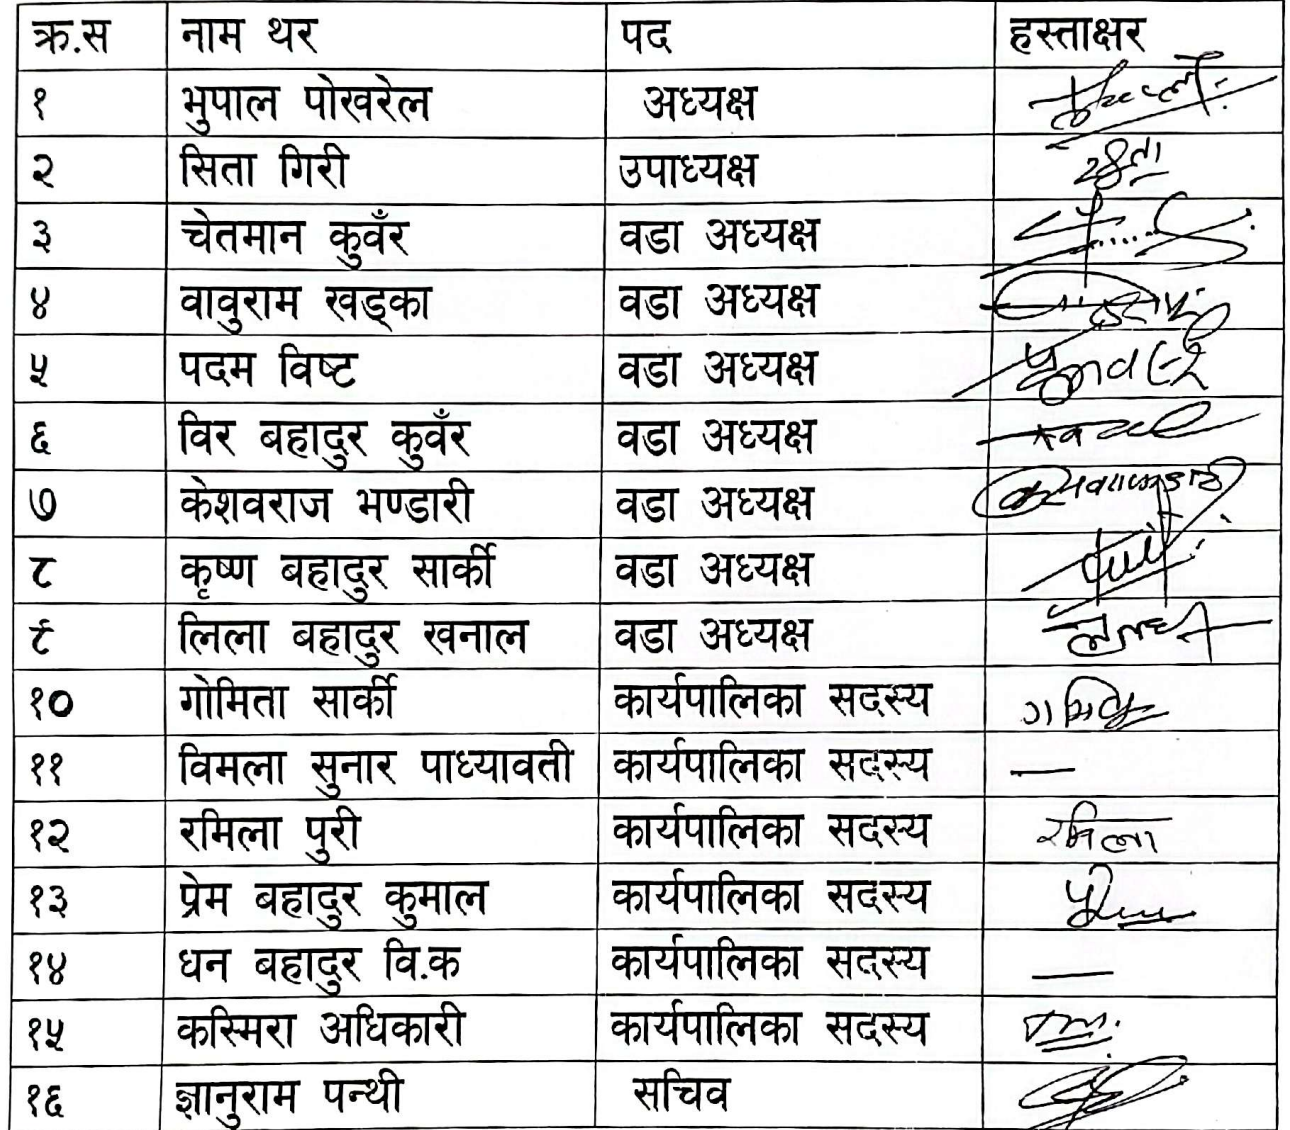 क्र.स नाम थर पद हस्ताक्षर
१ भुपाल पोखरेल अध्यक्ष
२ सिता गिरी उपाध्यक्ष
३ चेतमान कुवँर वडा अध्यक्ष
४ वावुराम खड्का वडा अध्यक्ष
५ पदम विष्ट वडा अध्यक्ष
६ विर बहादुर कुवँर वडा अध्यक्ष
७ केशवराज भण्डारी वडा अध्यक्ष
८ कृष्ण बहादुर सार्की वडा अध्यक्ष
९ लिला बहादुर खनाल वडा अध्यक्ष
१० गोमिता सार्की कार्यपालिका सदस्य
११ विमला सुनार पाध्यावती कार्यपालिका सदस्य —
१२ रमिला पुरी कार्यपालिका सदस्य रमिला
१३ प्रेम बहादुर कुमाल कार्यपालिका सदस्य
१४ धन बहादुर वि.क कार्यपालिका सदस्य —
१५ कस्मिरा अधिकारी कार्यपालिका सदस्य
१६ ज्ञानुराम पन्थी सचिव